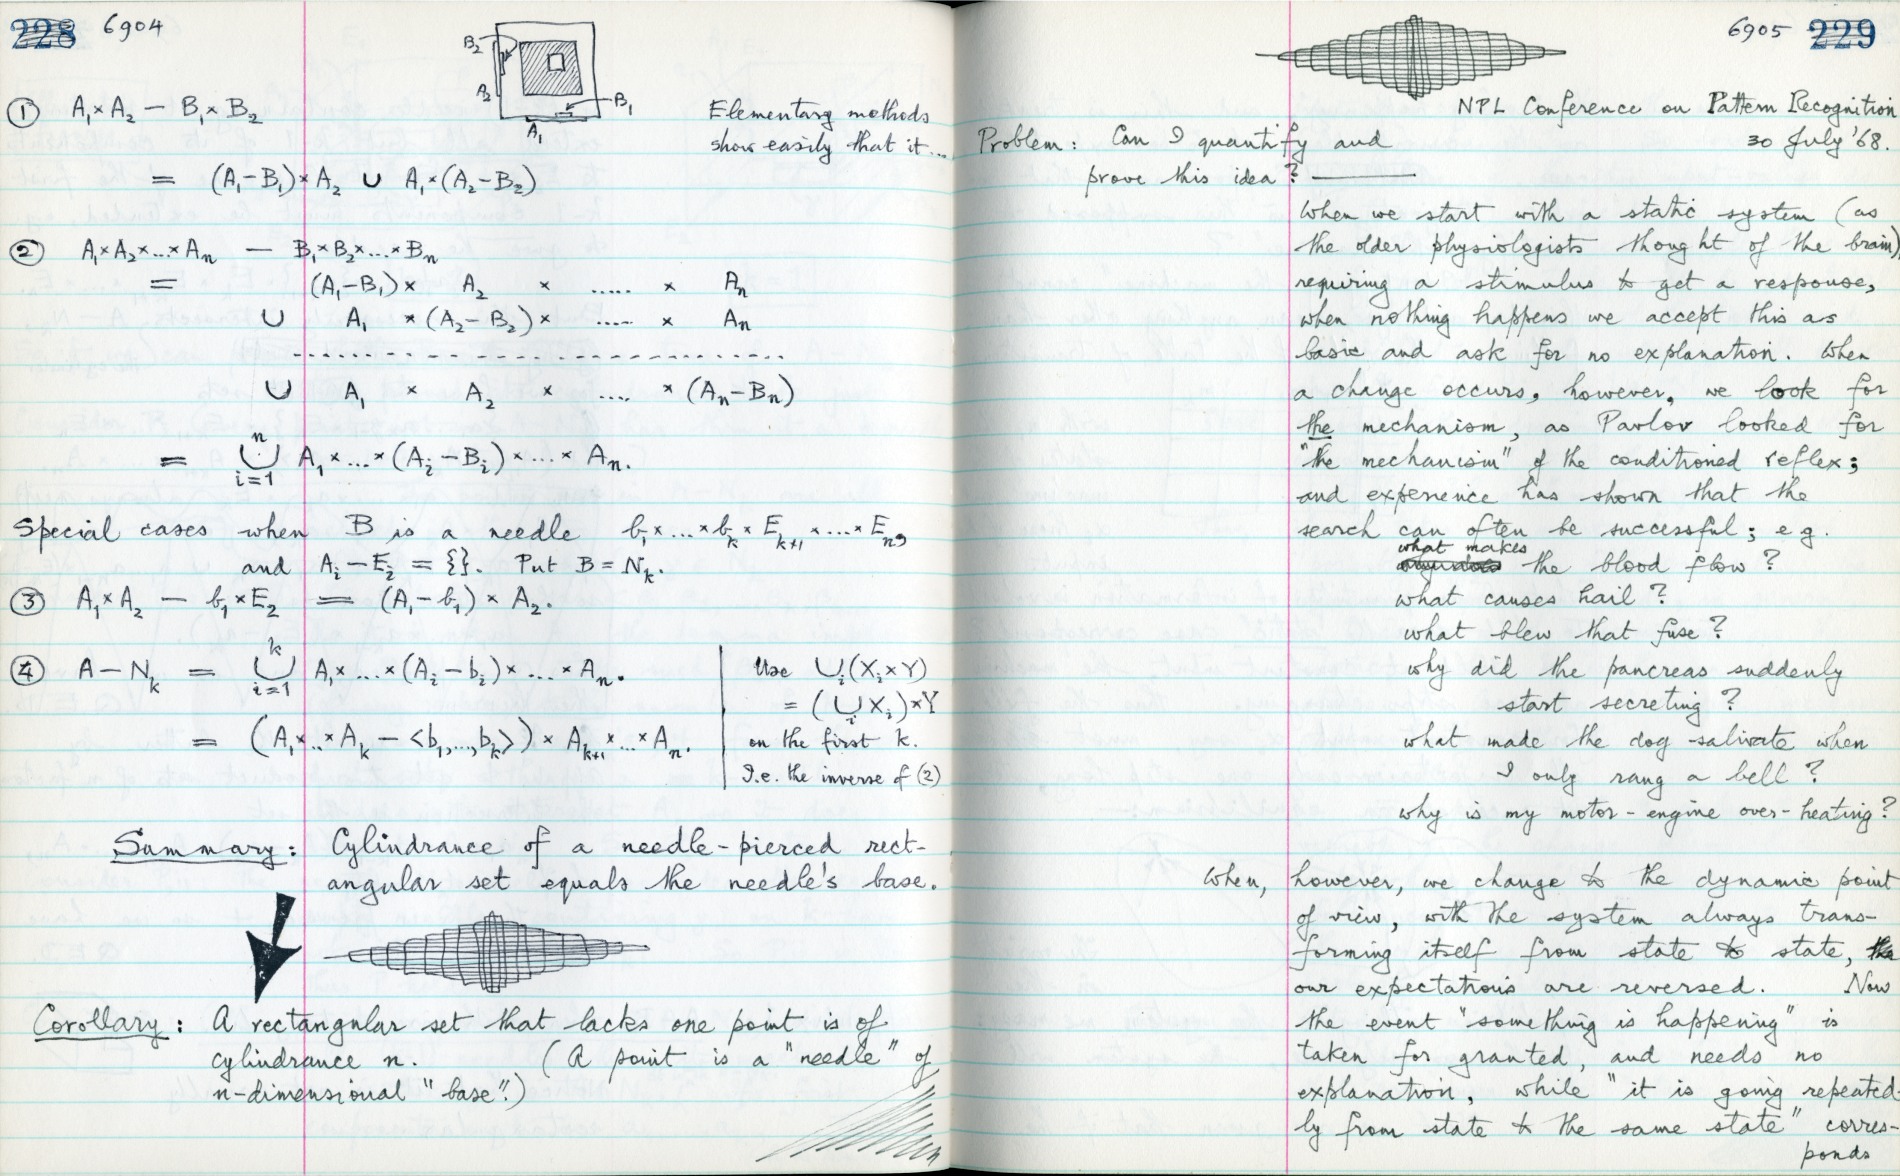 228 6904
B₂
A₂
B₁
A₁
① A₁×A₂ − B₁×B₂
Elementary methods
show easily that it...
= (A₁−B₁)×A₂ ∪ A₁×(A₂−B₂)
② A₁×A₂×...×Aₙ − B₁×B₂×...×Bₙ
= (A₁−B₁)× A₂ × ..... × Aₙ
∪ A₁ ×(A₂−B₂)× ..... × Aₙ
∪ A₁ × A₂ × .... ×(Aₙ−Bₙ)
= ⋃ᵢ₌₁ⁿ A₁×...×(Aᵢ−Bᵢ)×...×Aₙ.
Special cases when B is a needle b₁×...×bₖ×Eₖ₊₁×...×Eₙ,
and Aᵢ−Eᵢ = {}. Put B = Nₖ.
③ A₁×A₂ − b₁×E₂ = (A₁−b₁)×A₂.
④ A−Nₖ = ⋃ᵢ₌₁ᵏ A₁×...×(Aᵢ−bᵢ)×...×Aₙ.
= (A₁×..×Aₖ − <b₁,...,bₖ>)×Aₖ₊₁×...×Aₙ.
Use ⋃ᵢ(Xᵢ×Y)
= (⋃ᵢXᵢ)×Y
on the first k.
I.e. the inverse of (2)
Summary: Cylindrance of a needle-pierced rect-
angular set equals the needle's base.
Corollary: A rectangular set that lacks one point is of
cylindrance n. (A point is a "needle" of
n-dimensional "base".)
6905 229
NPL Conference on Pattern Recognition
30 July '68.
Problem: Can I quantify and
prove this idea? ———
When we start with a static system (as
the older physiologists thought of the brain),
requiring a stimulus to get a response,
when nothing happens we accept this as
basic and ask for no explanation. When
a change occurs, however, we look for
the mechanism, as Pavlov looked for
"the mechanism" of the conditioned reflex;
and experience has shown that the
search can often be successful; e.g.
what makes the blood flow?
what causes hail?
what blew that fuse?
why did the pancreas suddenly
start secreting?
what made the dog salivate when
I only rang a bell?
why is my motor-engine over-heating?
When, however, we change to the dynamic point
of view, with the system always trans-
forming itself from state to state, the
our expectations are reversed. Now
the event "something is happening" is
taken for granted, and needs no
explanation, while "it is going repeated-
ly from state to the same state" corres-
ponds